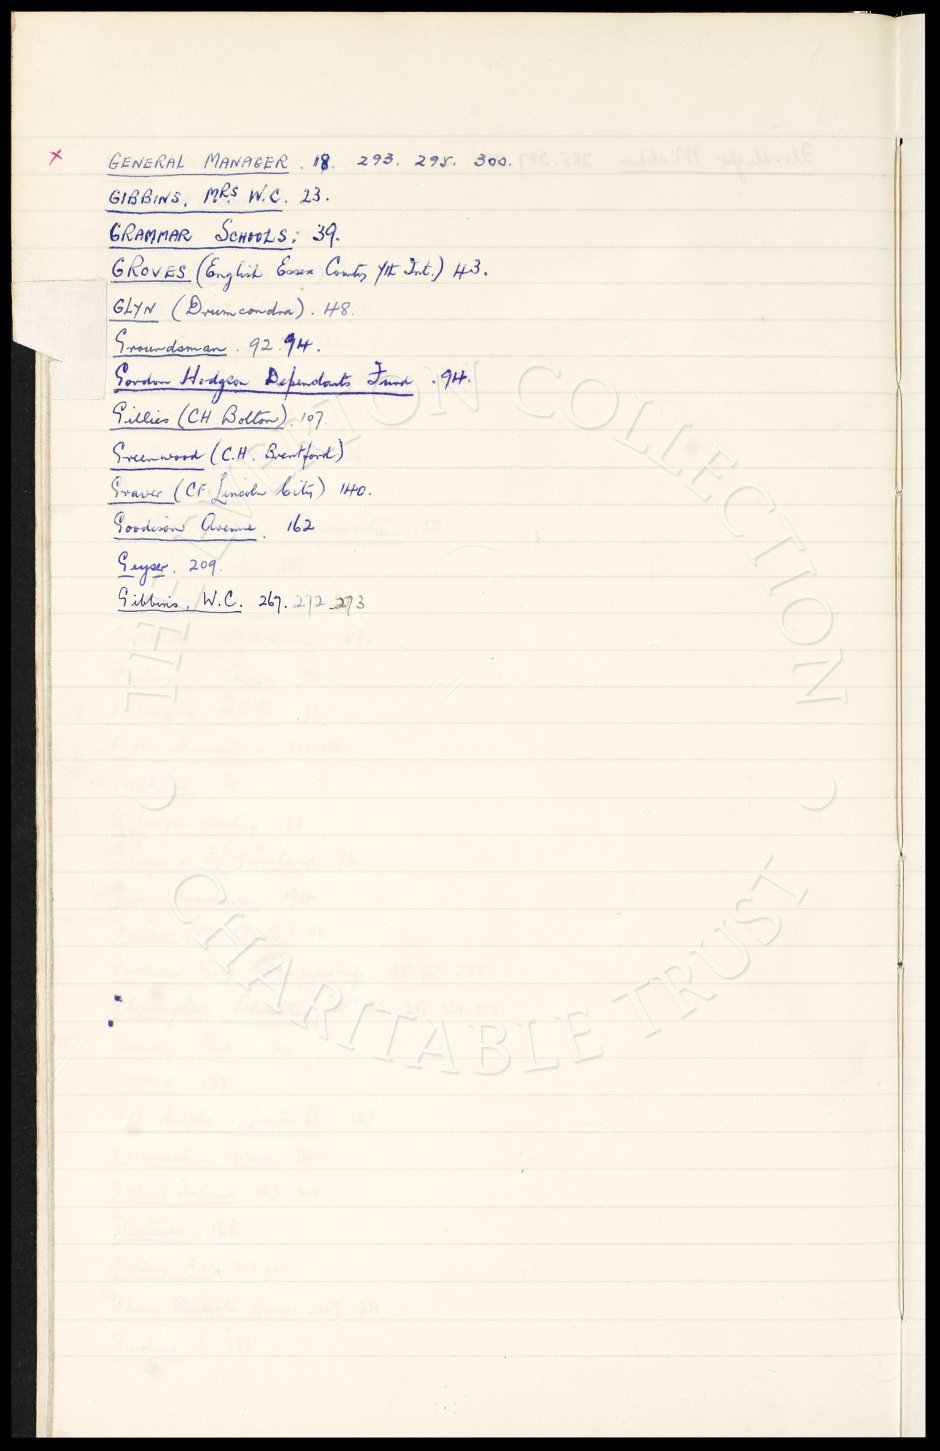 x GENERAL MANAGER . 18. 293. 295. 300.
GIBBINS, MRS W.C. 23.
GRAMMAR SCHOOLS: 39.
GROVES (English Essex County Yth Int.) 43.
GLYN (Drumcondra). 48.
Groundsman . 92. 94.
Gordon Hodgson Dependants Fund . 94.
Gillies (CH Bolton). 107.
Greenwood (C.H. Brentford)
Graver (CF Lincoln City) 140.
Goodison Avenue . 162
Geyser. 209.
Gibbins, W.C. 267. 272. 273
THE EVERTON COLLECTION
CHARITABLE TRUST